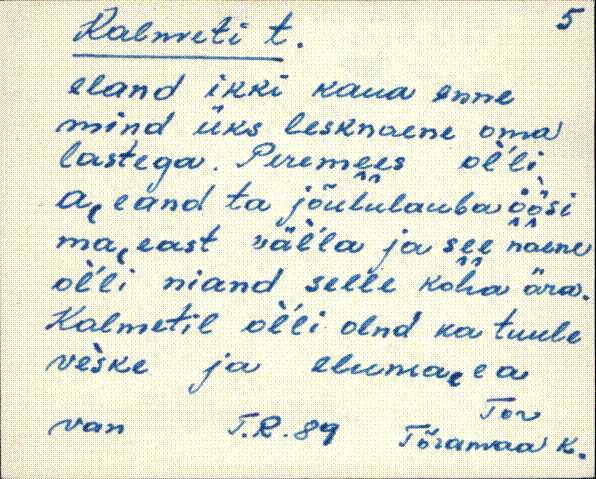 Kalmeti t. 5
eland ikki kaua enne
mind üks lesknaene oma
lastega. Peremees ol'li
a,eand ta jõululauba öösi
ma,east väl'la ja see naene
ol'li niand selle kõha ära.
Kalmetil ol'li olnd ka tuule
vèske ja eluma,ea
Tor
van T.R. 89 Tõramaa k.